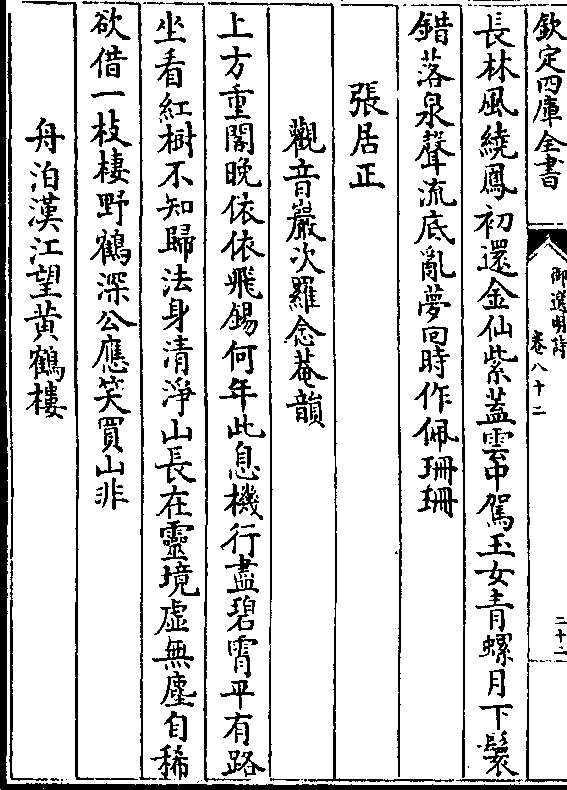 欽定四庫全書
御選明詩
卷八十二
二十二
長林風繞鳳初還金仙紫蓋雲中駕玉女青螺月下鬟
錯落泉聲流底亂夢回時作佩珊珊
張居正
觀音巖次羅念菴韻
上方重閣晚依依飛錫何年此息機行盡碧霄平有路
坐看紅樹不知歸法身清淨山長在靈境虛無塵自稀
欲借一枝棲野鶴深公應笑買山非
舟泊漢江望黃鶴樓